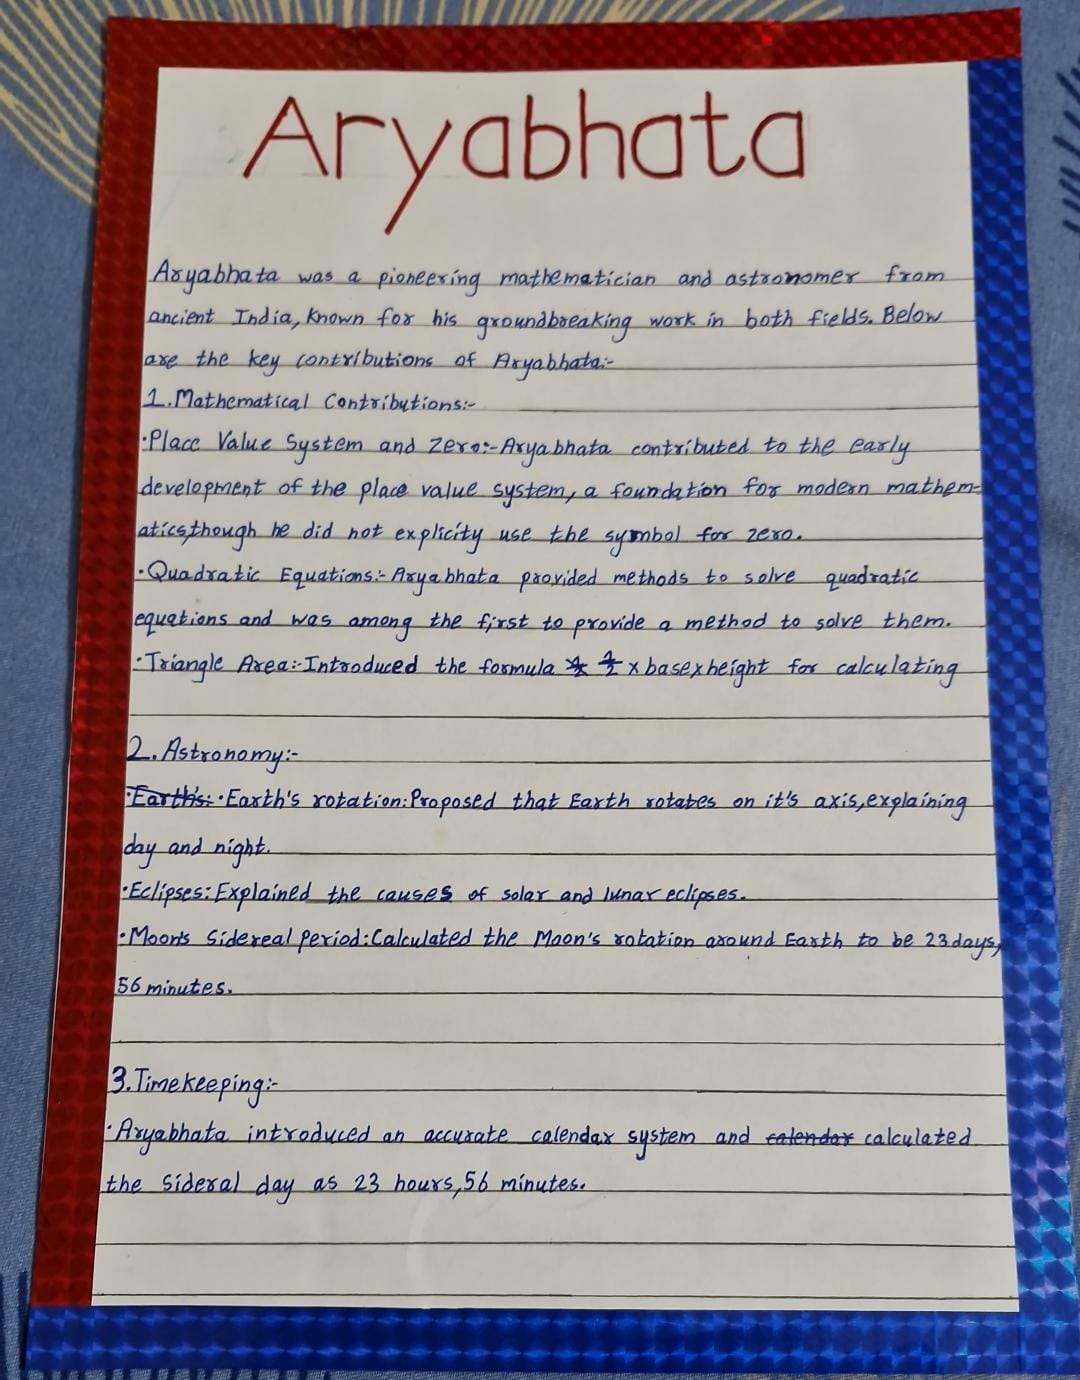 Aryabhata
Aryabhata was a pioneering mathematician and astronomer from
ancient India, known for his groundbreaking work in both fields. Below
are the key contributions of Aryabhata:-
1. Mathematical Contributions:-
·Place Value System and Zero:-Aryabhata contributed to the early
development of the place value system, a foundation for modern mathem-
atics,though he did not explicity use the symbol for zero.
·Quadratic Equations:- Aryabhata provided methods to solve quadratic
equations and was among the first to provide a method to solve them.
·Triangle Area:-Introduced the formula 1/2 x basexheight for calculating
2. Astronomy:-
·Earth's: ·Earth's rotation:Proposed that Earth rotates on it's axis,explaining
day and night.
·Eclipses:Explained the causes of solar and lunar eclipses.
·Moon's Sidereal Period:Calculated the Moon's rotation around Earth to be 23 days,
56 minutes.
3.Timekeeping:-
·Aryabhata introduced an accurate calendar system and calendar calculated
the Sideral day as 23 hours,56 minutes.